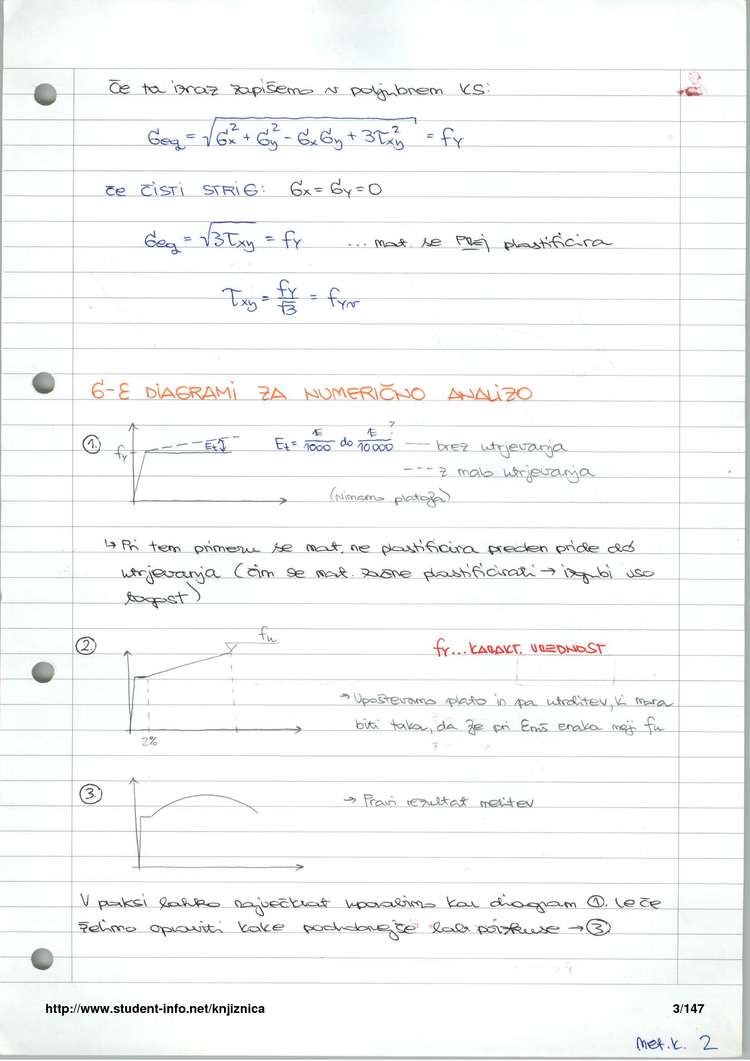 Če ta izraz zapišemo v poljubnem KS:
σeq = √(σx² + σy² - σxσy + 3τxy²) = fy
če ČISTI STRIG: σx = σy = 0
σeq = √3τxy = fy ... mat. se PREJ plastificira
τxy = fy/√3 = fyv
σ-ε DIAGRAMI ZA NUMERIČNO ANALIZO
1. fy Et Et = E/1000 do E/10000 ? — brez utrjevanja
--- z malo utrjevanja
(Nimamo platoja)
↳ Pri tem primeru se mat. ne plastificira preden pride do
utrjevanja (čim se mat. začne plastificirati → izgubi vso
togost)
2. fu fy... KARAKT. VREDNOST
→ Upoštevamo plato in pa utrditev, ki mora
biti taka, da že pri enaka meji fu
2% ?
3. → Pravi rezultat meritev
V praksi lahko največkrat uporabimo kar diagram 1. Le če
želimo opraviti kake podrobnejše lab. poizkuse → 3
http://www.student-info.net/knjiznica 3/147
Met.k. 2